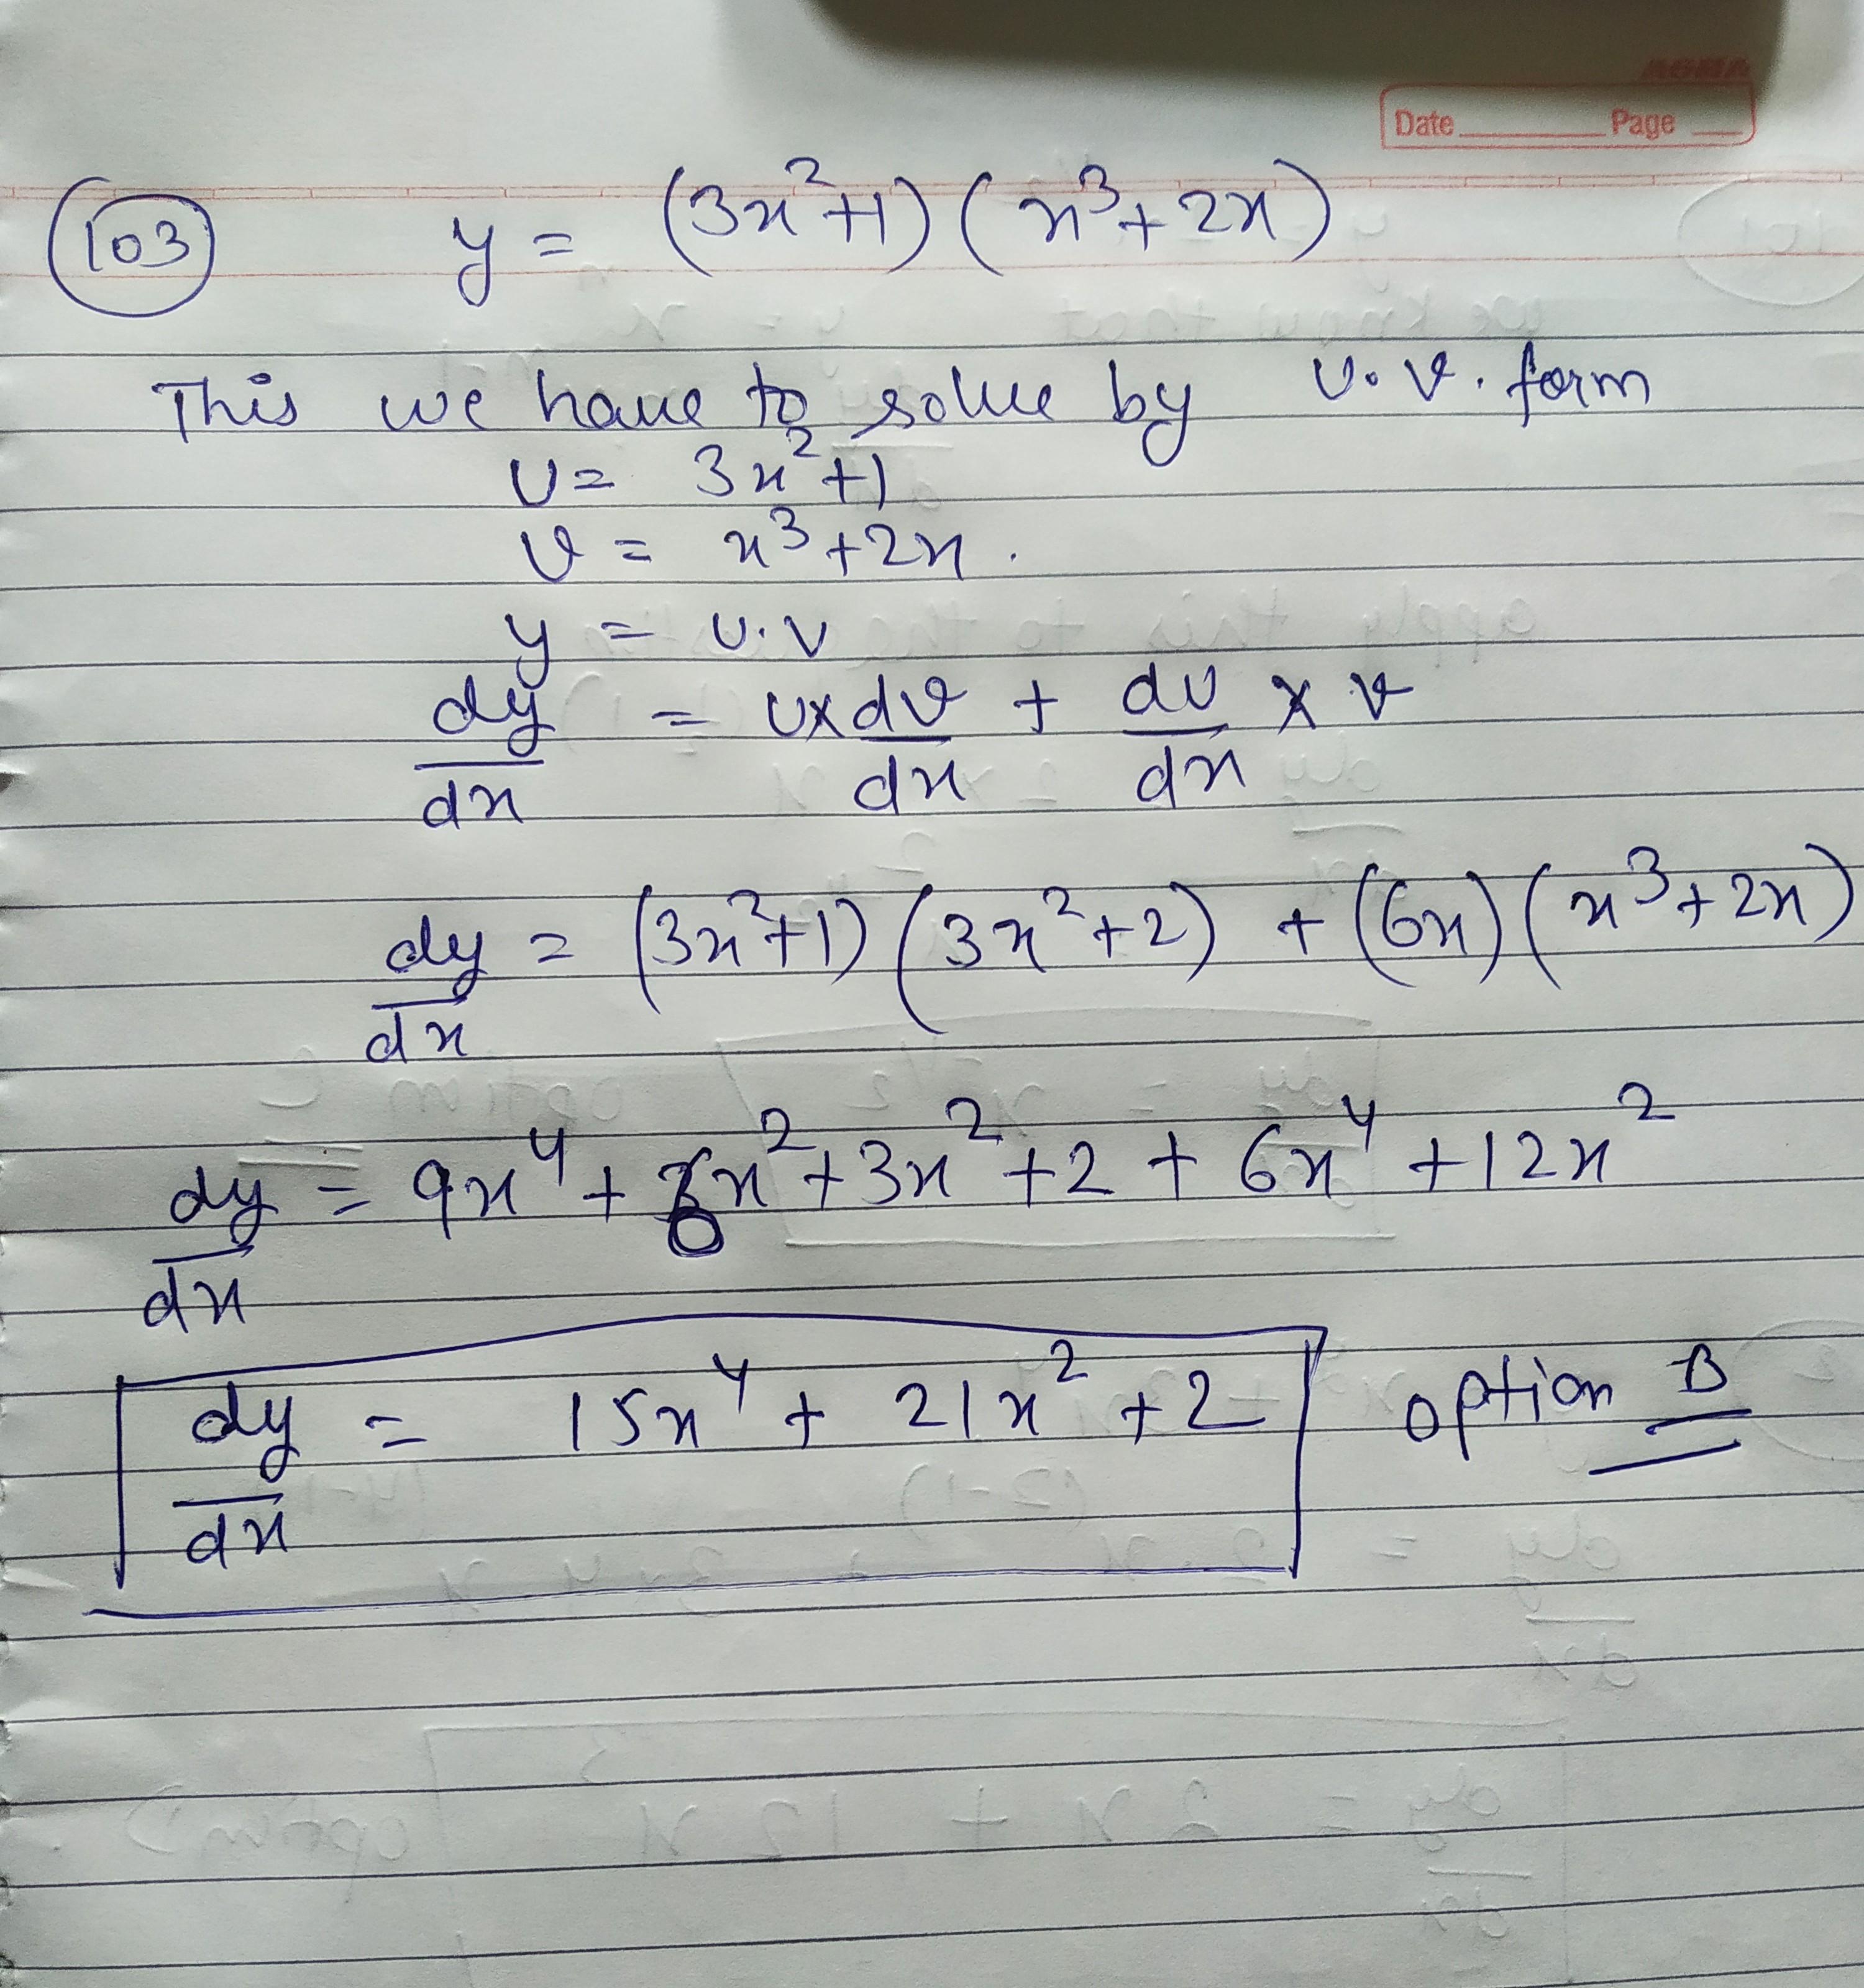 AGMA
Date Page
103 y = (3x²+1) (x³+2x)
This we have to solve by U.V. form
U = 3x²+1
V = x³+2x.
y = U.V
dy/dx = U×dV/dx + dU/dx × V
dy/dx = (3x²+1) (3x²+2) + (6x) (x³+2x)
dy/dx = 9x⁴ + 6x² + 3x² + 2 + 6x⁴ + 12x²
dy/dx = 15x⁴ + 21x² + 2 option B